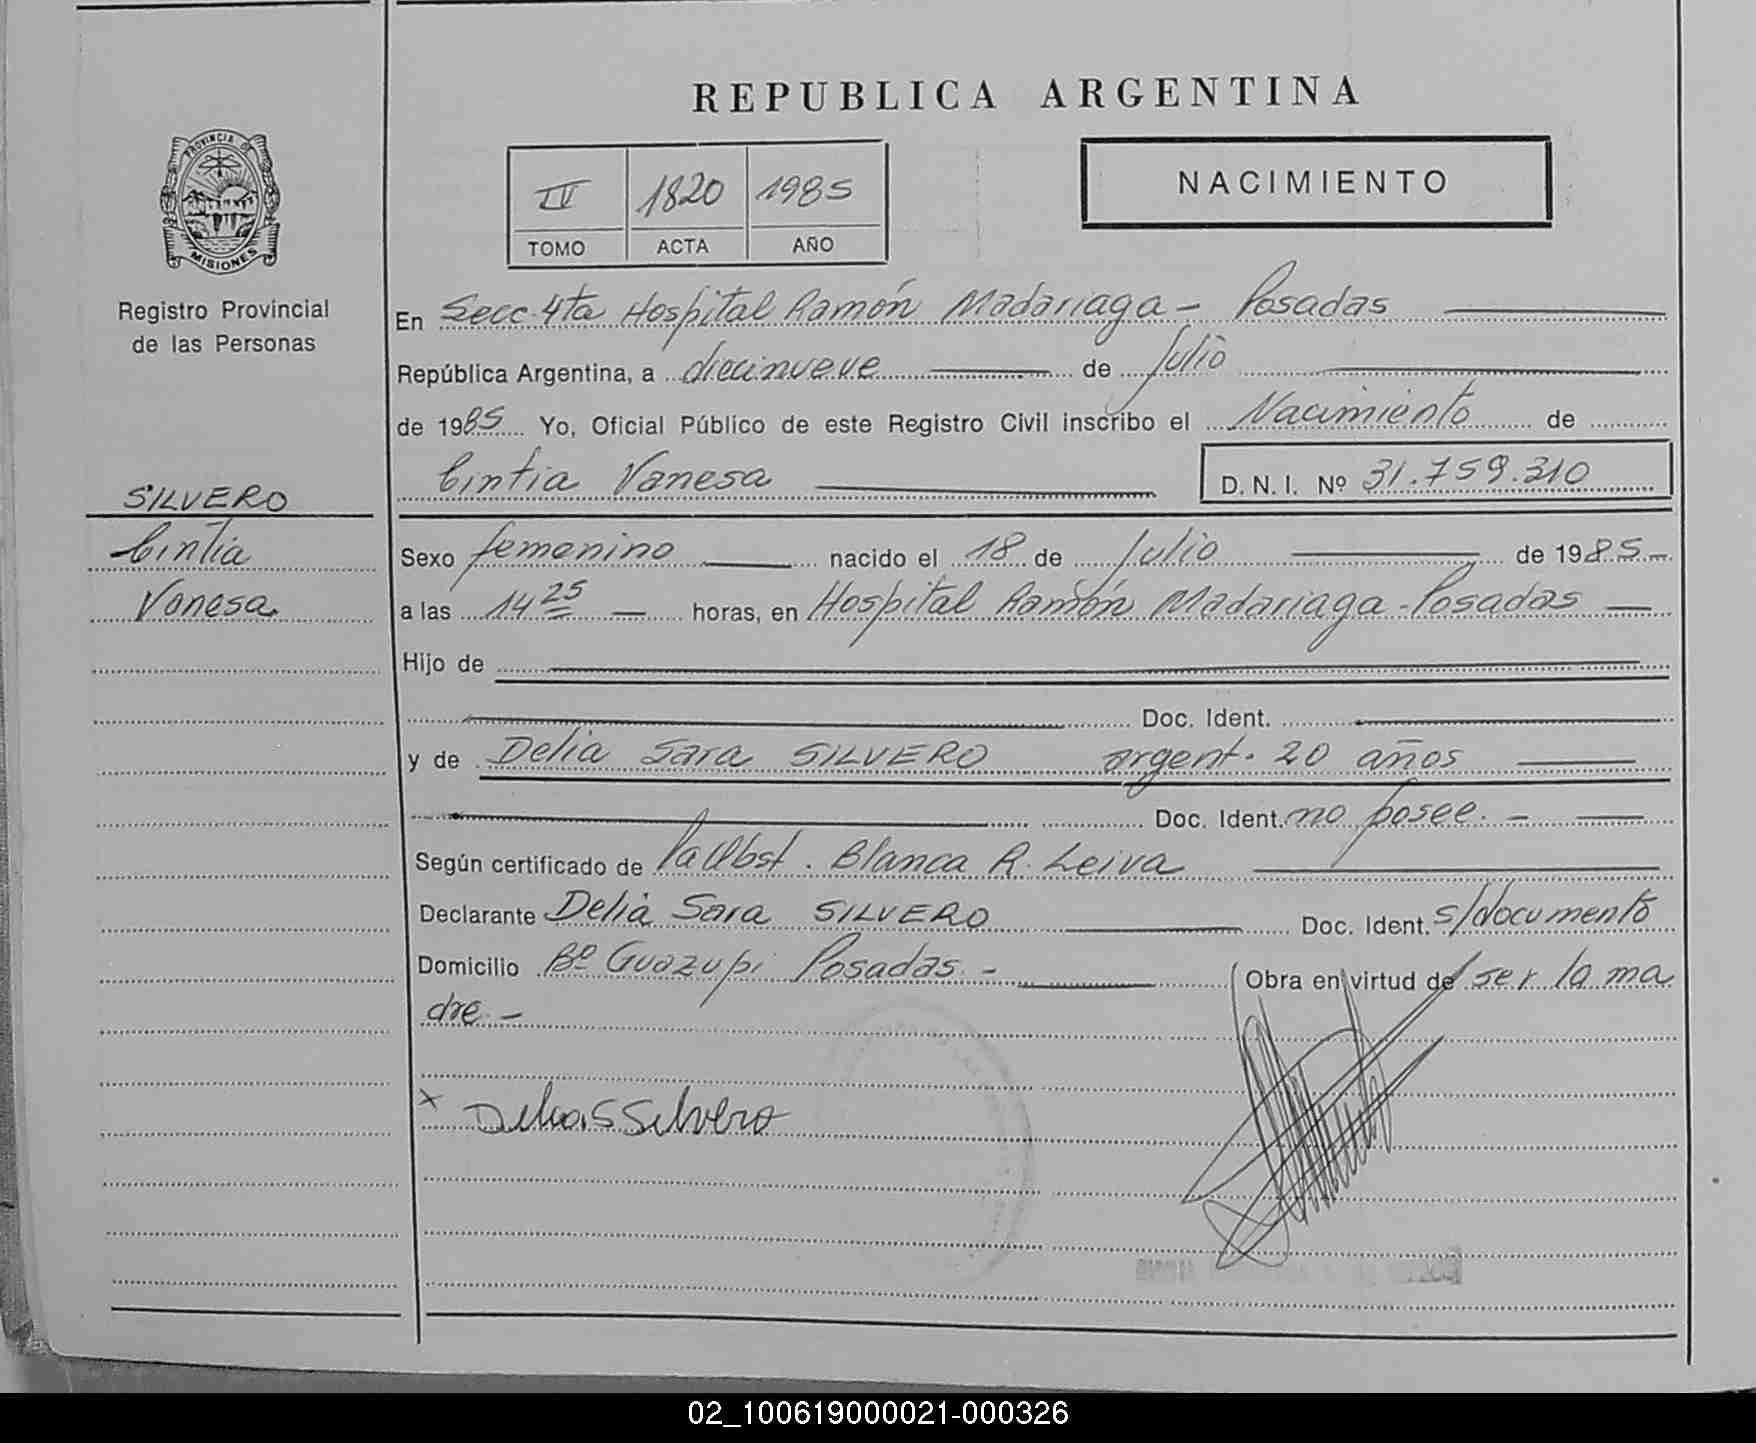 REPUBLICA ARGENTINA
PROVINCIA DE
MISIONES
Registro Provincial
de las Personas
IV 1820 1985
TOMO ACTA AÑO
NACIMIENTO
En Secc 4ta Hospital Ramón Madariaga - Posadas
República Argentina, a diecinueve de Julio
de 1985 Yo, Oficial Público de este Registro Civil inscribo el Nacimiento de
Cintia Vanesa D. N. I. Nº 31.759.310
SILVERO
Cintia
Vanesa
Sexo femenino nacido el 18 de Julio de 1985.-
a las 14 25 — horas, en Hospital Ramón Madariaga - Posadas —
Hijo de
Doc. Ident.
y de Delia Sara SILVERO argent. 20 años
Doc. Ident. no posee. -
Según certificado de la Obst. Blanca R. Leiva
Declarante Delia Sara SILVERO Doc. Ident. s/documento
Domicilio Bº Guazupi Posadas. - Obra en virtud de ser la ma
dre. -
x Delia S Silvero
02_100619000021-000326